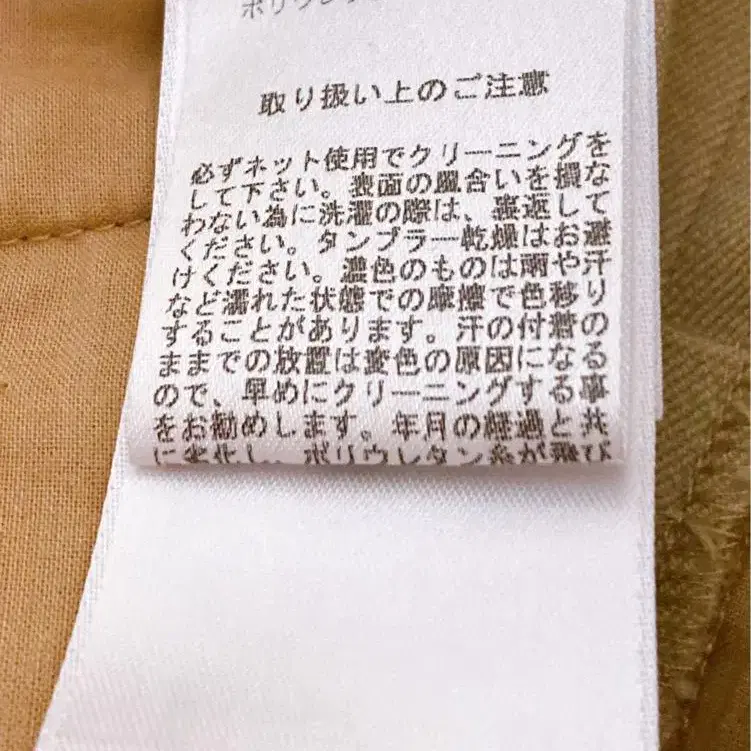 ポリウレタン
取り扱い上のご注意
必ずネット使用でクリーニングを
して下さい。表面の風合いを損な
わない為に洗濯の際は、裏返して
ください。タンブラー乾燥はお避
けください。濃色のものは雨や汗
など濡れた状態での摩擦で色移り
することがあります。汗の付着の
ままでの放置は変色の原因になる
ので、早めにクリーニングする事
をお勧めします。年月の経過と共
に劣化し、ポリウレタン糸が飛び